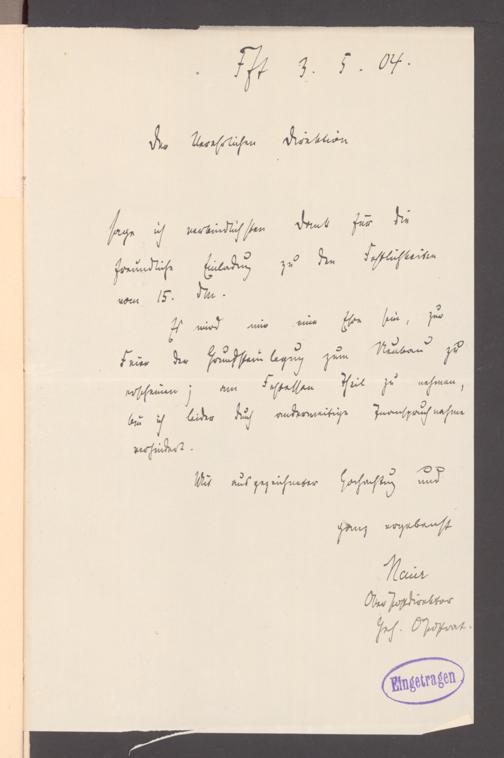 Fft 3. 5. 04.
Der Verehrlichen Direktion
sage ich verbindlichsten Dank für die
freundliche Einladung zu den Festlichkeiten
vom 15. dM.
Es wird mir eine Ehre sein, zur
Feier der Grundsteinlegung zum Neubau zu
erscheinen; am Festessen Theil zu nehmen,
bin ich leider durch anderweitige Inanspruchnahme
verhindert.
Mit ausgezeichneter Hochachtung und
ganz ergebenst
Maier
Oberpostdirektor
Geh.
Eingetragen